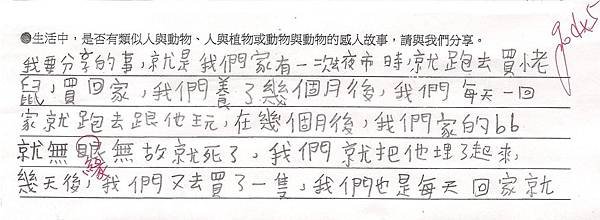 ●生活中，是否有類似人與動物、人與植物或動物與動物的感人故事，請與我們分享。
我要分享的事，就是我們家有一次夜市時，就跑去買小老
鼠，買回家，我們養了幾個月後，我們每天一回
家就跑去跟他玩，在幾個月後，我們家的bb
就無眼無故就死了，我們就把他埋了起來，
緣
幾天後，我們又去買了一隻，我們也是每天回家就